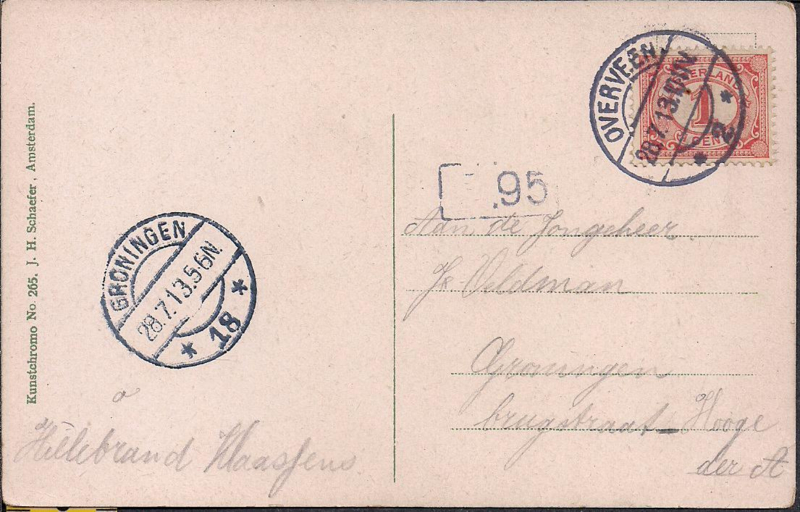 Kunstchromo No. 265. J. H. Schaefer, Amsterdam.
GRONINGEN
28.7.13.5-6N
* 18 *
Hillebrand Klaassens
OVERVEEN
28.7.13.
* 2 *
NEDERLAND
1
CENT
.95
Aan de Jongeheer
Veldman
Groningen
brugstraat Hooge
der A